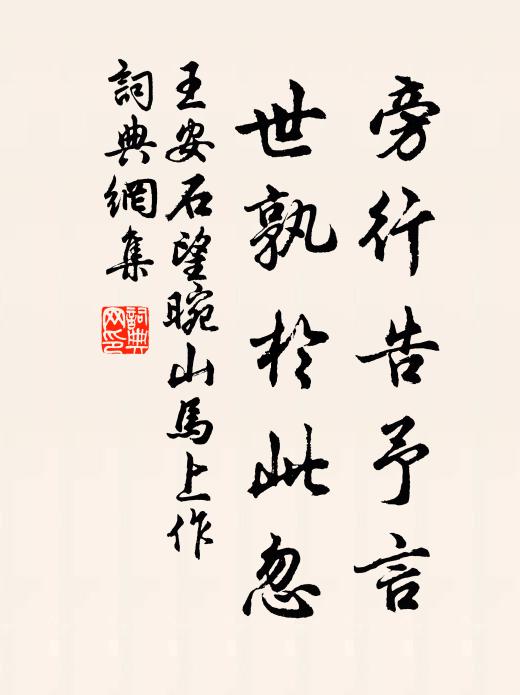 旁行告予言
世孰於此忽
王安石望晥山馬上作
詞典網集
詞典
网印